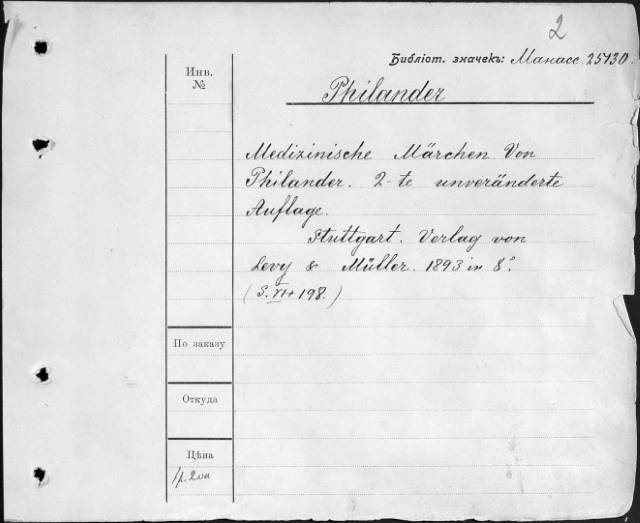 2
Библіот. значекъ: Манасс. 25130.
Инв.
№
Philander
Medizinische Märchen Von
Philander. 2-te unveränderte
Auflage.
Stuttgart. Verlag von
Levy & Müller. 1893 in 8°.
(S. VI + 198.)
По заказу
Откуда
Цѣна